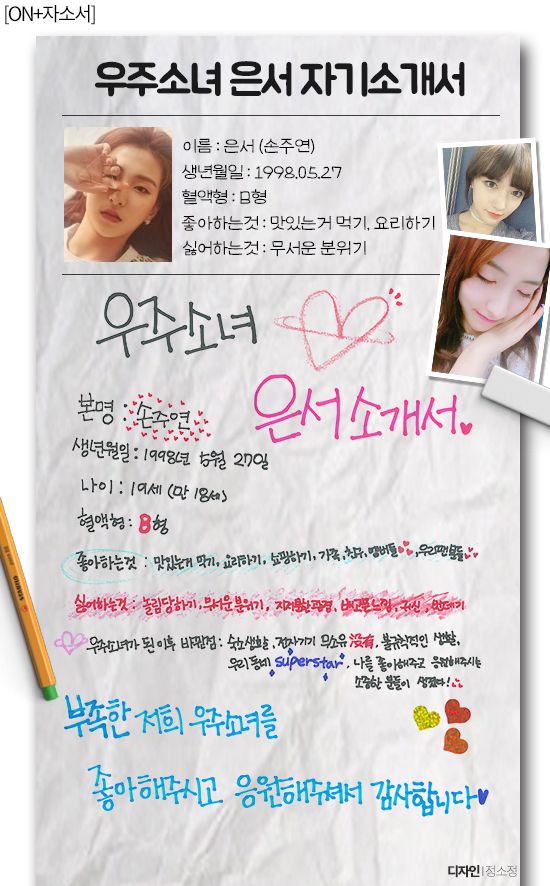 [ON+자소서]
우주소녀 은서 자기소개서
이름 : 은서 (손주연)
생년월일 : 1998.05.27
혈액형 : B형
좋아하는것 : 맛있는거 먹기, 요리하기
싫어하는것 : 무서운 분위기
우주소녀
은서 소개서
본명 : 손주연
생년월일 : 1998년 5월 27일
나이 : 19세 (만 18세)
혈액형 : B형
좋아하는것 : 맛있는거 먹기, 요리하기, 쇼핑하기, 가족, 친구, 멤버들, 우리팬분들
싫어하는것 : 놀림당하기, 무서운 분위기, 지저분한환경, 배고픈느낌, 귀신, 번데기
우주소녀가 된 이후 바뀐점 : 숙소생활, 전자기기 무소유 没有, 불규칙적인 생활,
우리동네 superstar, 나를 좋아해주고 응원해주시는
소중한 분들이 생겼다!
부족한 저희 우주소녀를
좋아해주시고 응원해주셔서 감사합니다
디자인 | 정소정